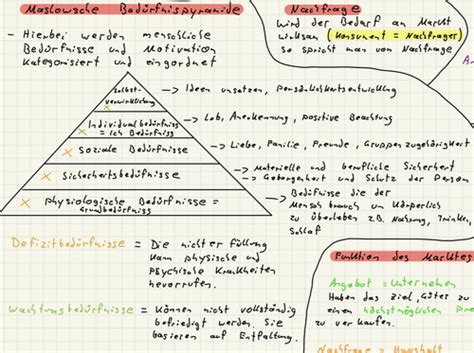 Maslowsche Bedürfnispyramide
- Hierbei werden menschliche
Bedürfnisse und Motivation
kategorisiert und eingordnet
Selbst-
verwirklichung
→ Ideen umsetzen, Persönlichkeitsentwicklung
Individualbedürfniss
= ich Bedürfniss
→ Lob, Anerkennung, positive Beachtung
soziale Bedürfnisse
→ Liebe, Familie, Freunde, Gruppenzugehörigkeit
Sicherheitsbedürfnisse
→ Materielle und berufliche Sicherheit
→ Geborgenheit und Schutz der Person
physiologische Bedürfnisse =
Grundbedürfnisse
→ Bedüfnisse die der
Mensch brauch um Körperlich
zu überleben z.B. Nahrung, Trinken,
Schlaf
Defizitbedürfnisse = Die nichterfüllung
kann physische und
psychische Krankheiten
hevorrufen.
Wachtumsbedürfnisse = Können nicht vollständig
befriedigt werden. Sie
basieren auf Entfaltung.
Nachfrage
wird der Bedarf an Markt
wirksam (Konsument = Nachfrager)
so spricht man von Nachfrage
Funktion des Marktes
Angebot = Unternehmen
Haben das Ziel, Güter zu
einen höchstmöglichen
zu verkaufen.
Nachfrage = Haushalt